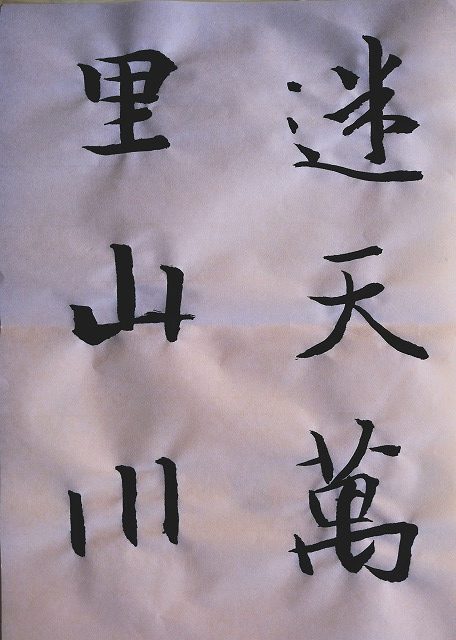 迷天萬
里山川